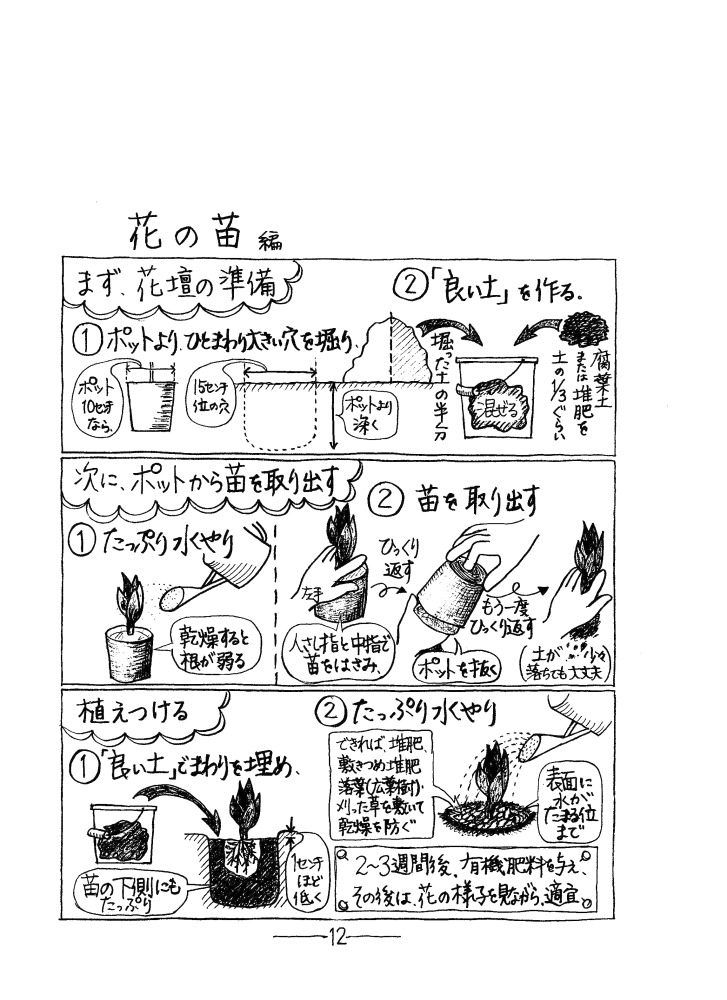 花の苗 編
まず、花壇の準備
①ポットより、ひとまわり大きい穴を掘り、
ポット
10センチ
なら、
15センチ
位の穴
ポットより
深く
②「良い土」を作る.
掘った土の半分
混ぜる
腐葉土
または堆肥を
土の1/3ぐらい
次に、ポットから苗を取り出す
①たっぷり水やり
乾燥すると
根が弱る
②苗を取り出す
左手
人さし指と中指で
苗をはさみ、
ひっくり
返す
ポットを抜く
もう一度
ひっくり返す
(土が少々
落ちても大丈夫)
植えつける
①「良い土」でまわりを埋め、
苗の下側にも
たっぷり
1センチ
ほど
低く
②たっぷり水やり
できれば、堆肥、
敷きつめ堆肥
落葉(広葉樹)・
刈った草を敷いて
乾燥を防ぐ
表面に
水が
たまる位
まで
2〜3週間後、有機肥料を与え、
その後は、花の様子を見ながら、適宜
12